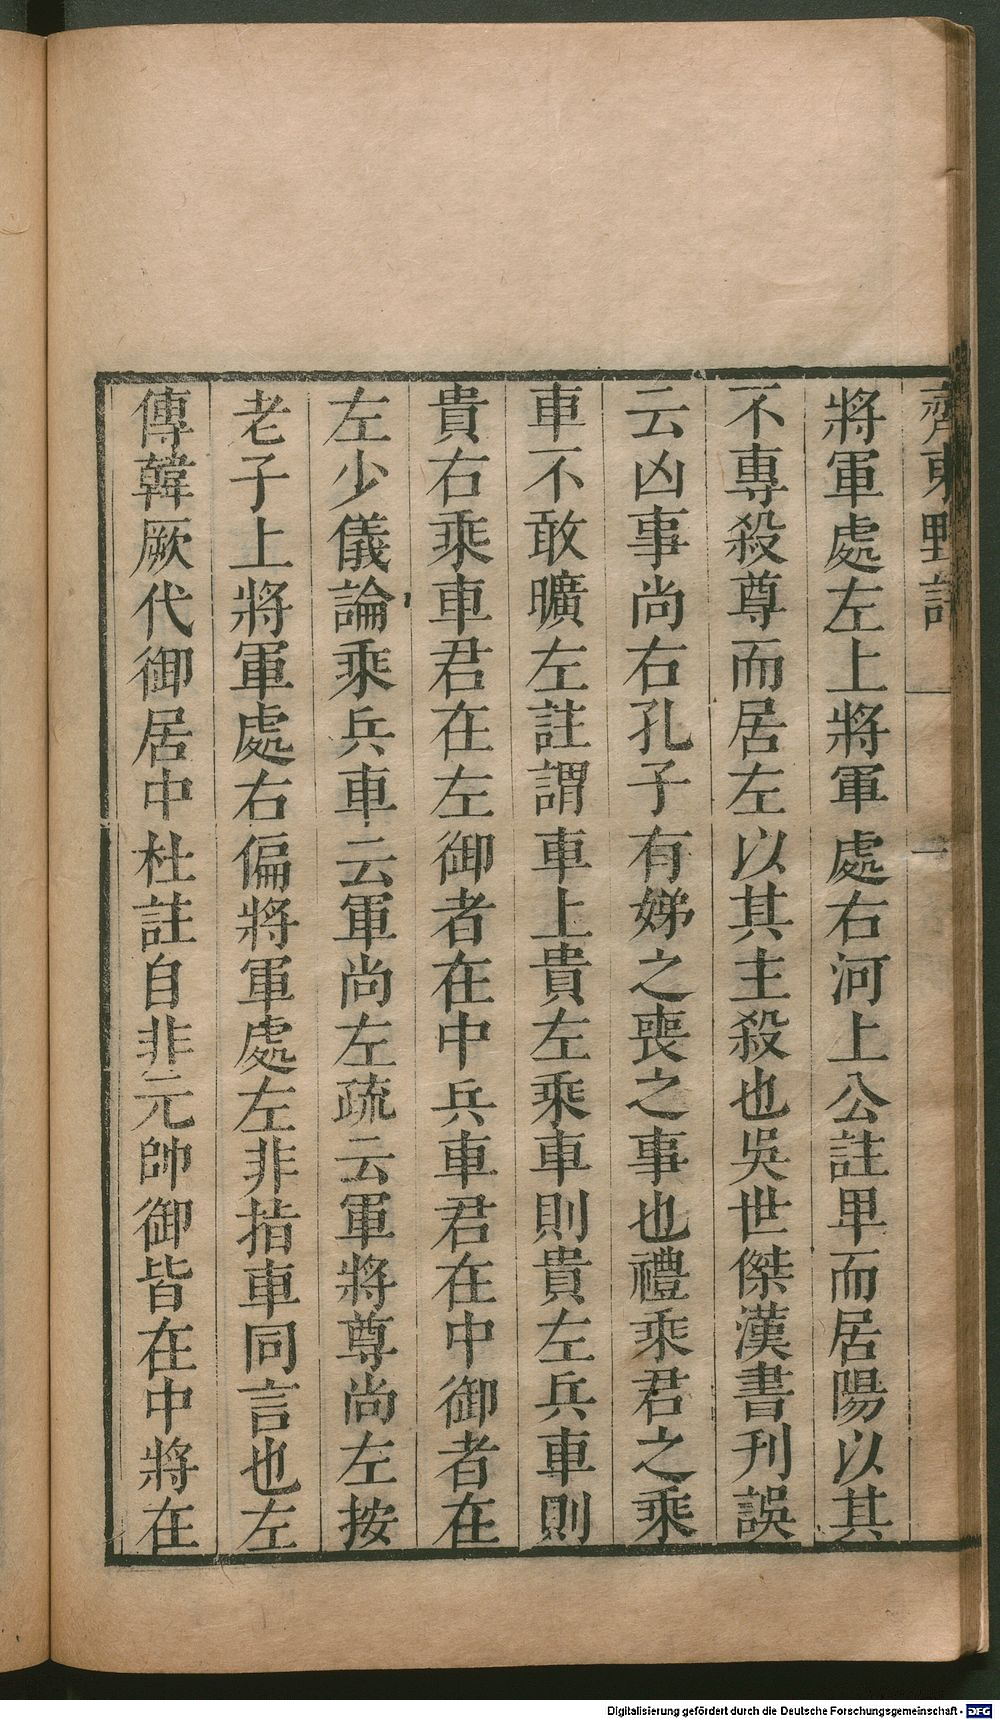 齊東野語
一
將軍處左上將軍處右河上公註卑而居陽以其
不專殺尊而居左以其主殺也吳世傑漢書刊誤
云凶事尚右孔子有娣之喪之事也禮乘君之乘
車不敢曠左註謂車上貴左乘車則貴左兵車則
貴右乘車君在左御者在中兵車君在中御者在
左少儀論乘兵車云軍尚左疏云軍將尊尚左按
老子上將軍處右偏將軍處左非指車同言也左
傳韓厥代御居中杜註自非元帥御皆在中將在
Digitalisierung gefördert durch die Deutsche Forschungsgemeinschaft - DFG